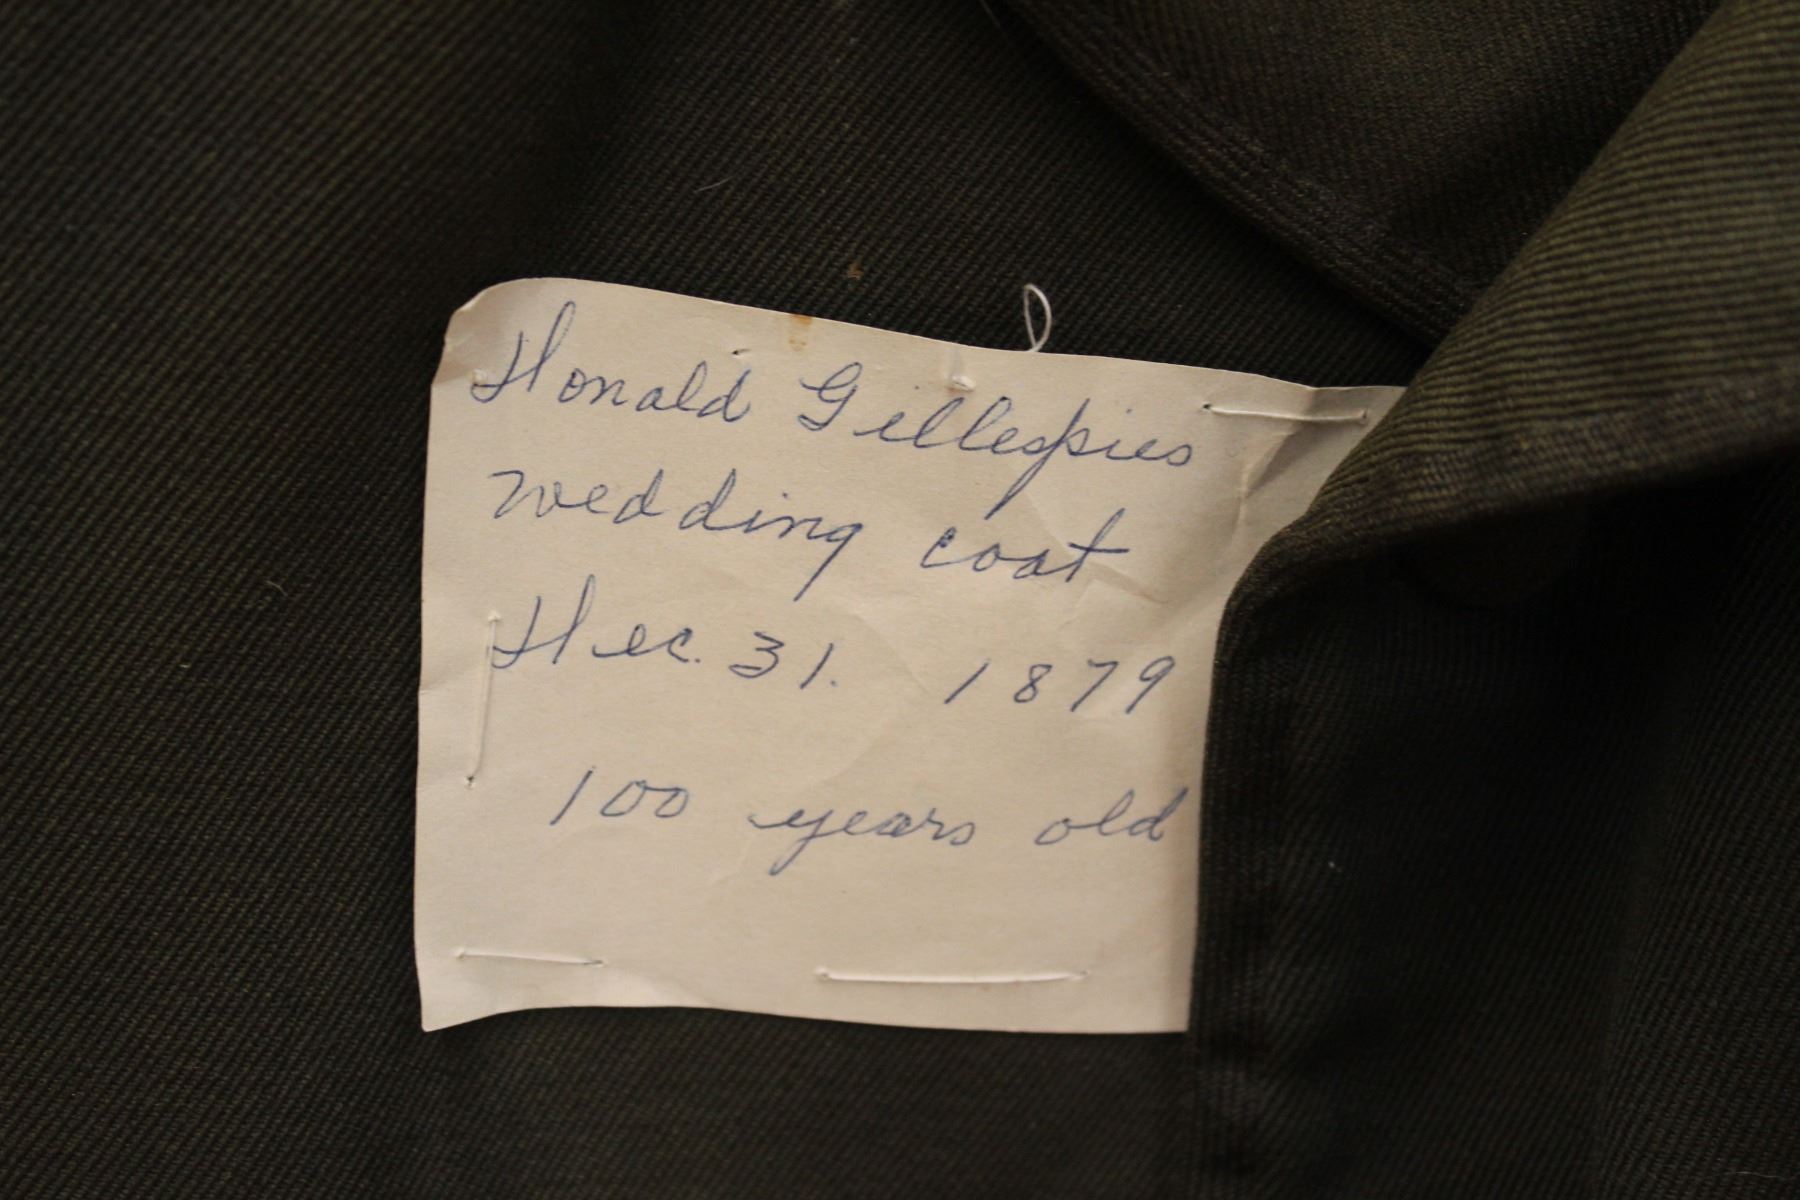 Donald Gillespies
wedding coat
Dec. 31. 1879
100 years old